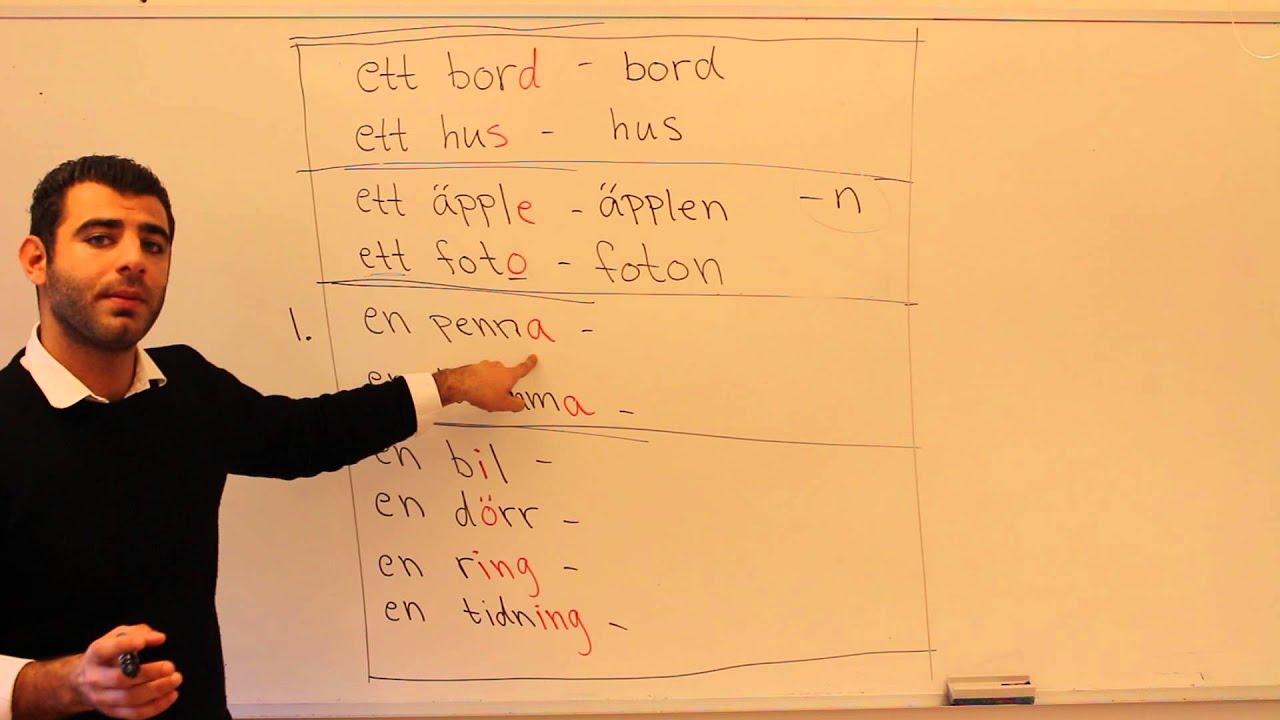 ett bord - bord
ett hus - hus
ett äpple - äpplen -n
ett foto - foton
1. en penna -
en -
en bil -
en dörr -
en ring -
en tidning -